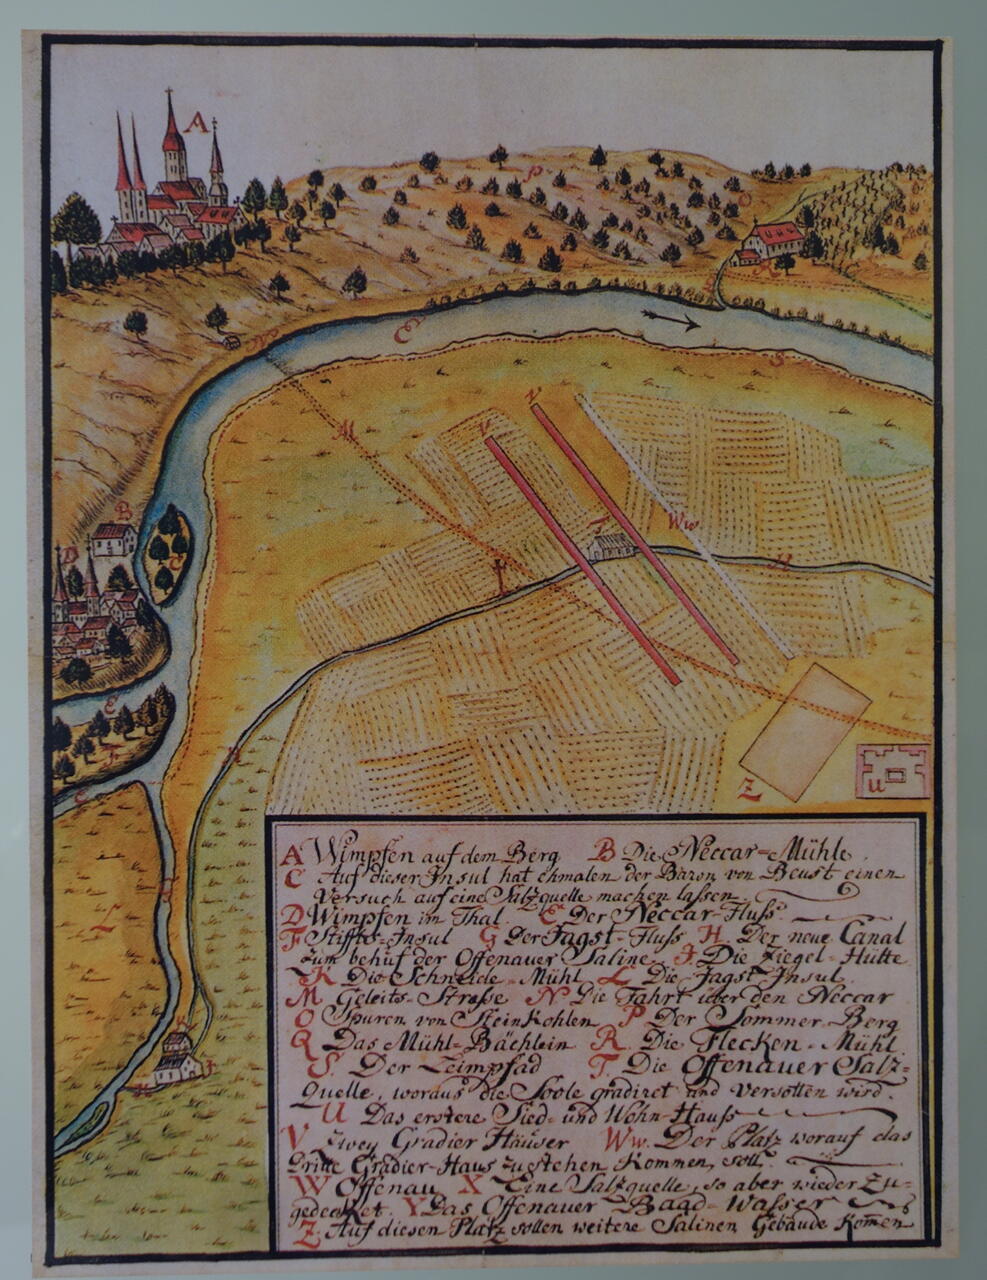 A
P
O
Q
R
C
N
S
M
V
V
Ww
B
C
D
T
H
E
F
G
H
Z
U
L
K
A Wimpfen auf dem Berg B Die Neccar=Mühle.
C Auf dieser Insul hat ehmalen der Baron von Beust einen
Versuch auf eine Saltzquelle machen lassen
D Wimpfen im Thal. E Der Neccar-Fluss.
F Stiffts-Insul G Der Jagst-Fluss H. Der neue Canal
zum behuf der Offenauer Saline. I Die Ziegel-Hütte
K Die Schneide-Mühl L Die Jagst-Insul.
M Geleits-Strasse N Die Fahrt über den Neccar
O Spuren von Steinkohlen P Der Sommer-Berg
Q Das Mühl-Bächlein R. Die Flecken-Mühl
S. Der Leimpfad T. Die Offenauer Saltz=
quelle, woraus die Soole gradiret und versotten wird.
U Das erstere Sied- und Wohn-Hauss
V Zwey Gradier Häuser Ww. Der Platz worauf das
dritte Gradier-Haus zustehen kommen soll.
W Offenau X Eine Saltzquelle, so aber wieder zu=
gedecket. Y Das Offenauer Baad-Wasser
Z. Auf diesen Platz sollen weitere Salinen Gebäude komen